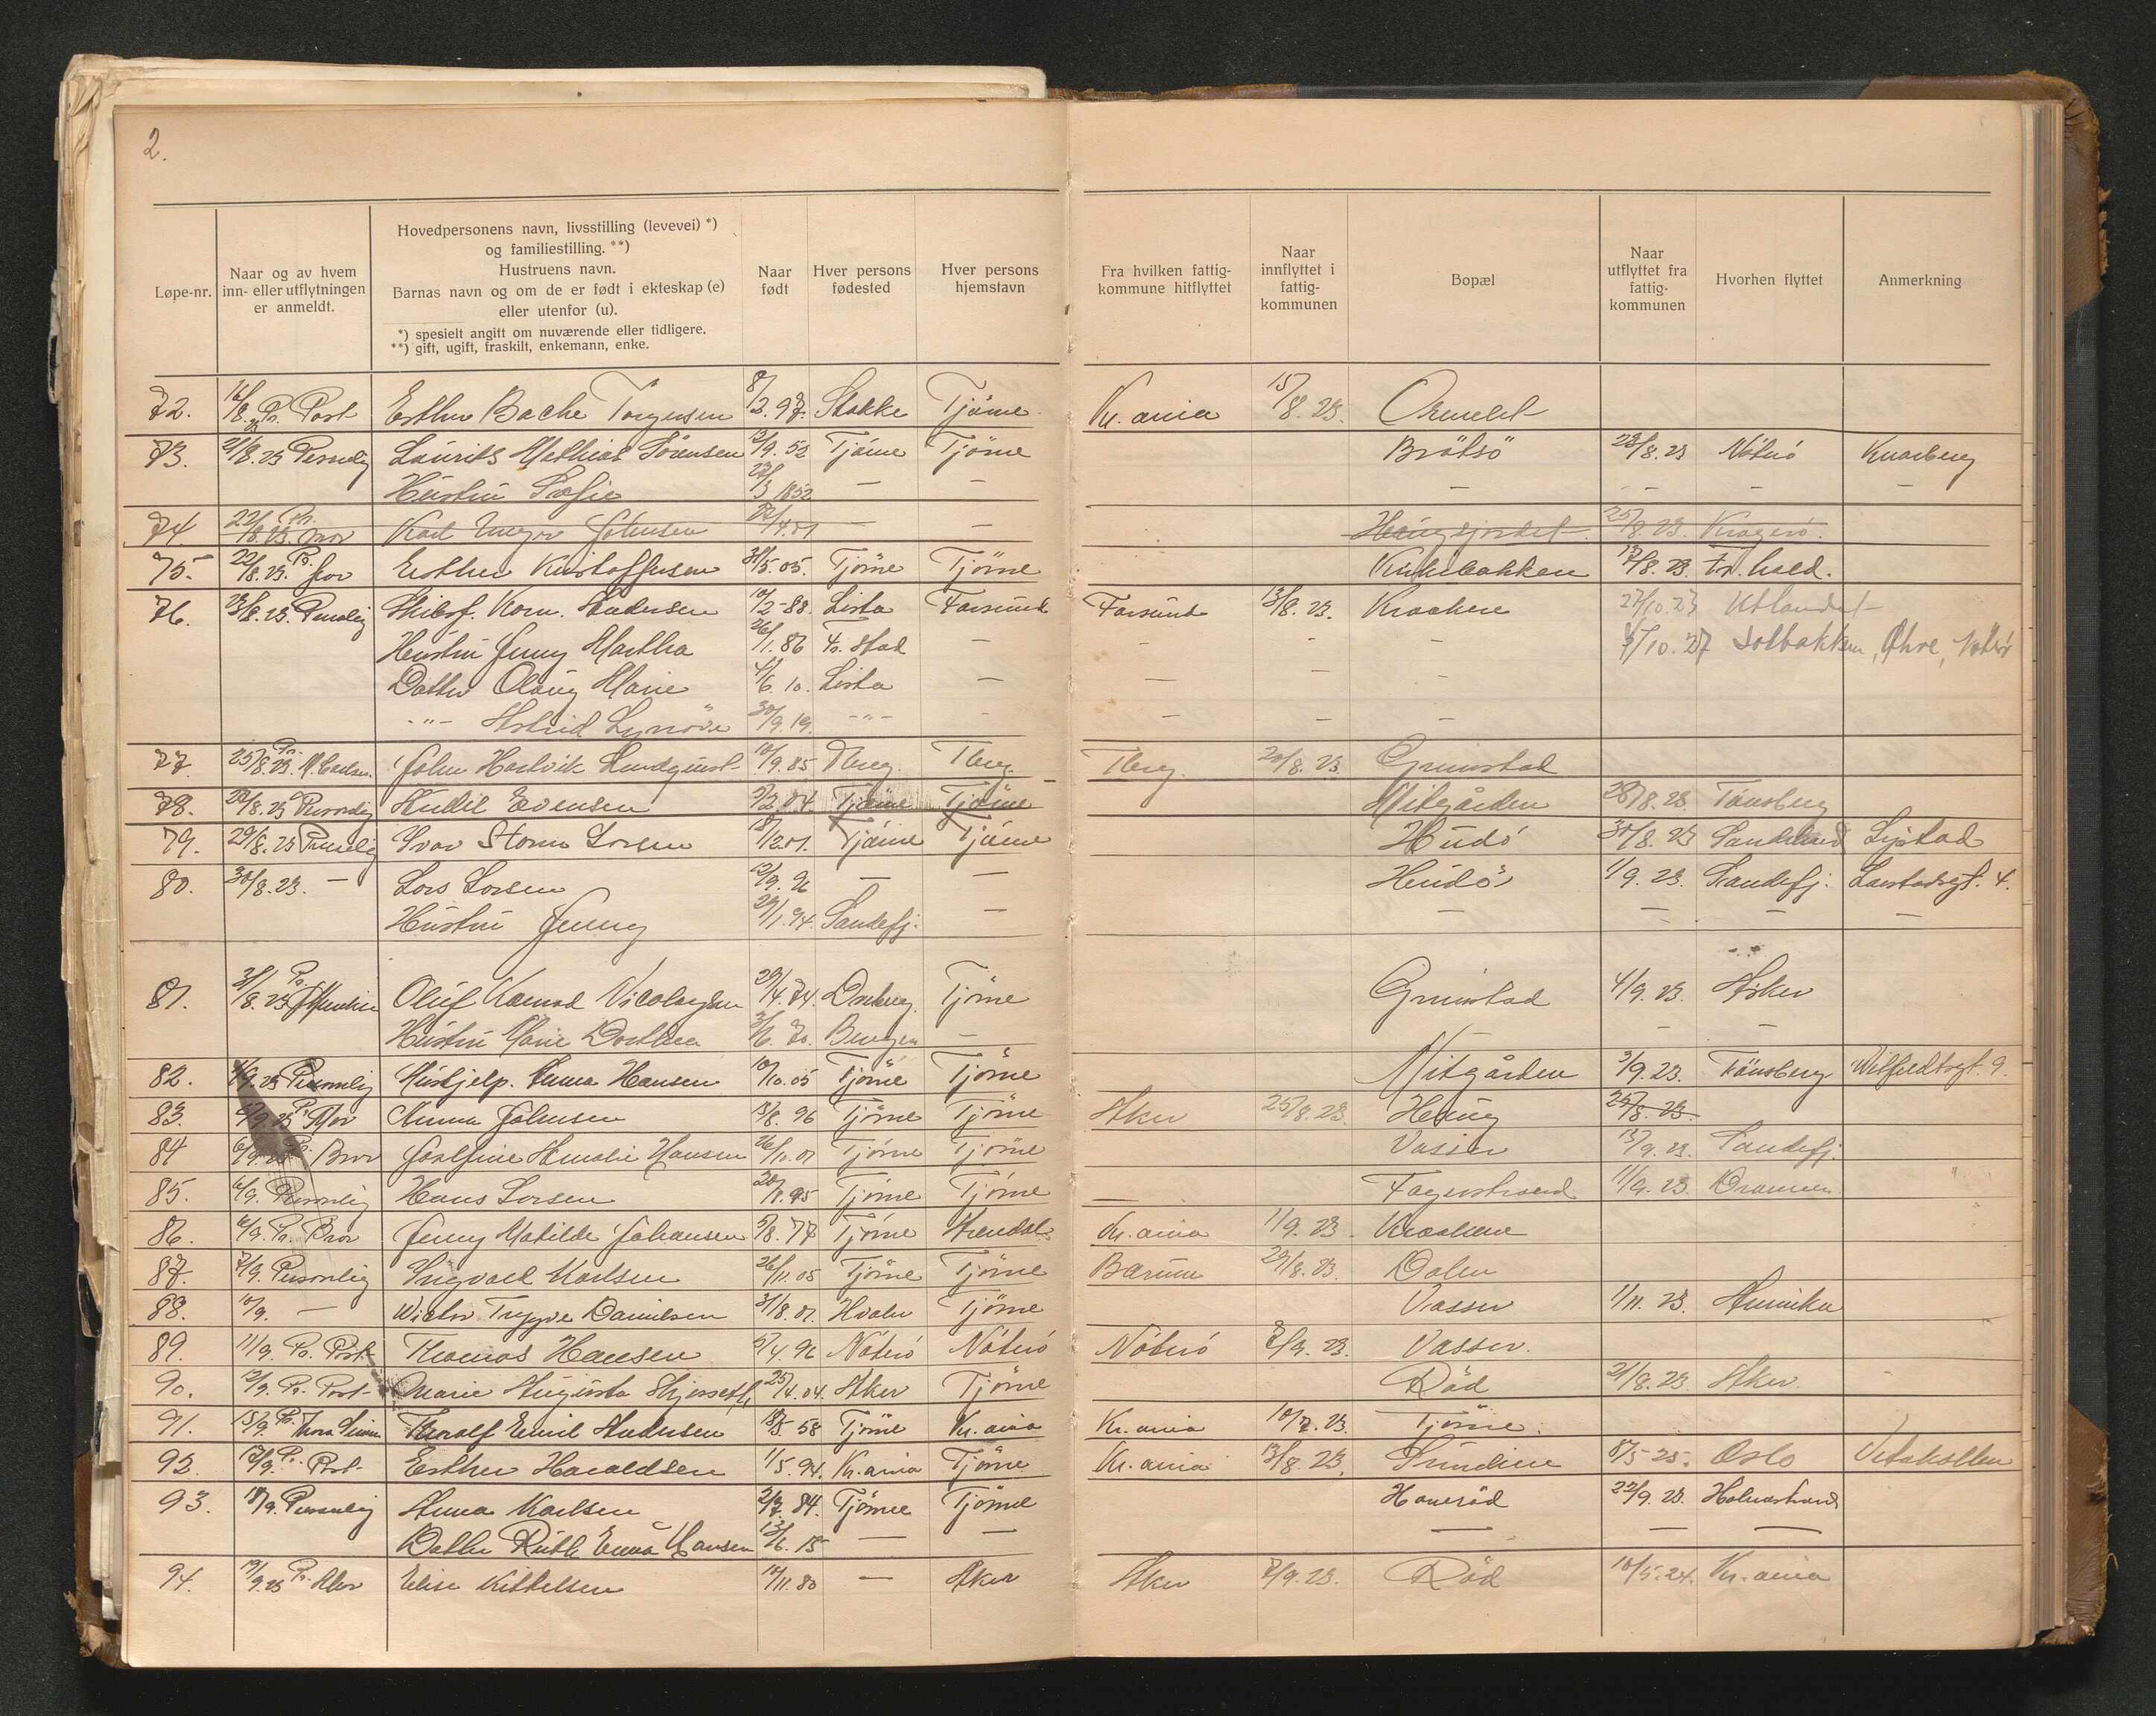 2.
Løpe-nr.
Naar og av hvem
inn- eller utflytningen
er anmeldt.
Hovedpersonens navn, livsstilling (levevei) *)
og familiestilling. **)
Hustruens navn.
Barnas navn og om de er født i ekteskap (e)
eller utenfor (u).
*) spesielt angitt om nuværende eller tidligere.
**) gift, ugift, fraskilt, enkemann, enke.
Naar
født
Hver persons
fødested
Hver persons
hjemstavn
Fra hvilken fattig-
kommune hitflyttet
Naar
innflyttet i
fattig-
kommunen
Bopæl
Naar
utflyttet fra
fattig-
kommunen
Hvorhen flyttet
Anmerkning
72. 16/8 23 Pr. Post Esther Bache Torgersen 8/2.97. Stokke Tjöme Kr.ania 15/8.23. Ormelet
73. 21/8.23 Personlig Laurits Mathias Sörensen /9.52 Tjöme Tjöme Brötsö 23/8.23 Nöterö Knarberg
Hustru Sofie 27/3 1852 — — — — — —
74 22/8.23. Pr. mor Karl Unger Johnsen 22/4.01 — — Haugsjordet 25/8.23. Kragerö.
75. 22/8.23. Pr. far Esther Kristoffersen 31/5.05. Tjöme Tjöme Kirkebakken 17/8.23. Fr.hald.
76. 23/8.23. Personlig Korn. Andersen 10/2-88 Lista Farsund Farsund 13/8.23. Kraakere 27/10.23 Utlandet
Hustru Jenny Martha 26/1.86 Fr.stad — — — — 5/10.27 Solbakken, Öhre, Nöterö
Datter Olaug Marie 4/6.10. Lista — — — —
-"- Astrid Synöve 30/9.19. -"- — — — —
77. 25/8.23. Pr. M. Carlsen. John Hartvik Lundquist 10/9.85 Tberg. Tberg. Tberg. 20/8.23. Grimstad
78. 28/8.23 Personlig Evensen 3/2.04 Tjöme Tjöme Mitgården 28/8.23. Tönsberg
79. 29/8.23 Personlig Ivar Storm Larsen 18/12.01. Tjöme Tjöme Hudö 30/8.23 Sandeherred Lystad
80. 30/8.23. — Lars Larsen 12/9.96 — — Hudö 1/9.23. Sandefj. Laastadsgt. 4.
Hustru Jenny 29/1.94. Sandefj. — — — — —
81. 31/8.23 Pr. Oluf Konrad Nicolaysen 29/4.74. Tjöme Grimstad 4/9.23. Asker
Hustru Marie Dorthea 3/6.70. Bergen — — —
82. /9.23 Personlig Hushjelp. Anna Hansen 10/10.05 Tjöme Tjöme Mitgården 3/9.23. Tönsberg 9.
83. 5/9.23 Pr. Mor Anna Johnsen 13/8.96 Tjöme Tjöme Aker 25/8.23. Haug 25/8.23.
84 6/9.23 Pr. Bror Josefine Amalie Hansen 26/10.01 Tjöme Tjöme Vasser 13/9.23. Sandefj.
85. 6/9. Personlig Hans Larsen 20/8.95 Tjöme Tjöme — Fagerstrand 11/9.23. Drammen.
86. 6/9. Pr. Bror Jenny Matilde Johansen 3/8.77 Tjöme Arendal Kr.ania 1/9.23. Kraakere
87. 7/9. Personlig Sigvald Karlsen 26/11.05 Tjöme Tjöme Bærum 29/8.23. Dalen
88. 10/9. — Wictor Trygve Danielsen 31/8.01. Hvaler Tjöme Vasser 1/11.23. Amerika
89. 11/9. Pr. Post Thomas Hansen 5/4.96 Nöterö Nöterö Nöterö 7/9.23. Vasser.
90. 12/9. Pr. Post Marie Augusta 25/4.04. Aker Tjöme Röd 21/8.23 Aker.
91. 15/9 Pr. Thoralf Emil Andersen 18/5 58 Tjöme Kr.ania Kr.ania 10/7.23. Tjöme.
92. 17/9. Pr. Post Esther Haraldsen 1/5.94. Kr.ania Tjöme Kr.ania 13/8.23. Sundene 8/5-25. Oslo Vetakollen
93. 18/9. Personlig Anna Karlsen 2/7.84. Tjöme Tjöme Haneröd 22/9.23. Holmestrand
Datter Ruth Erna Hansen 13/6.15 — — — — —
94. 19/9.23 Pr. Mor Elise Kittelsen 14/11.80 — Aker Aker 7/9.23. Röd 10/5.24. Kr.ania